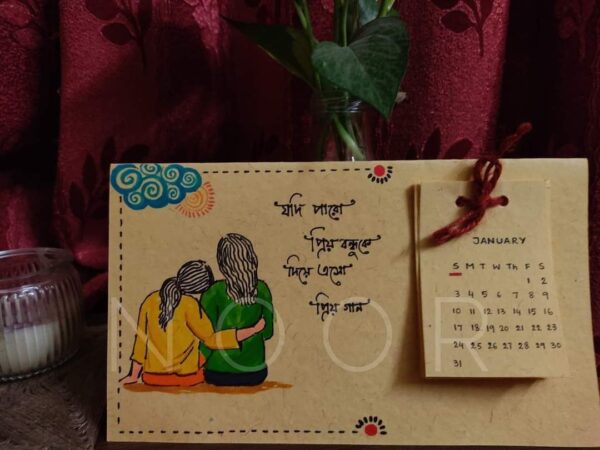 যদি পারো
প্রিয় বন্ধুকে
দিয়ে এসো
প্রিয় গান
JANUARY
S M T W Th F S
1 2
3 4 5 6 7 8 9
10 11 12 13 14 15 16
17 18 19 20 21 22 23
24 25 26 27 28 29 30
31
NOOR